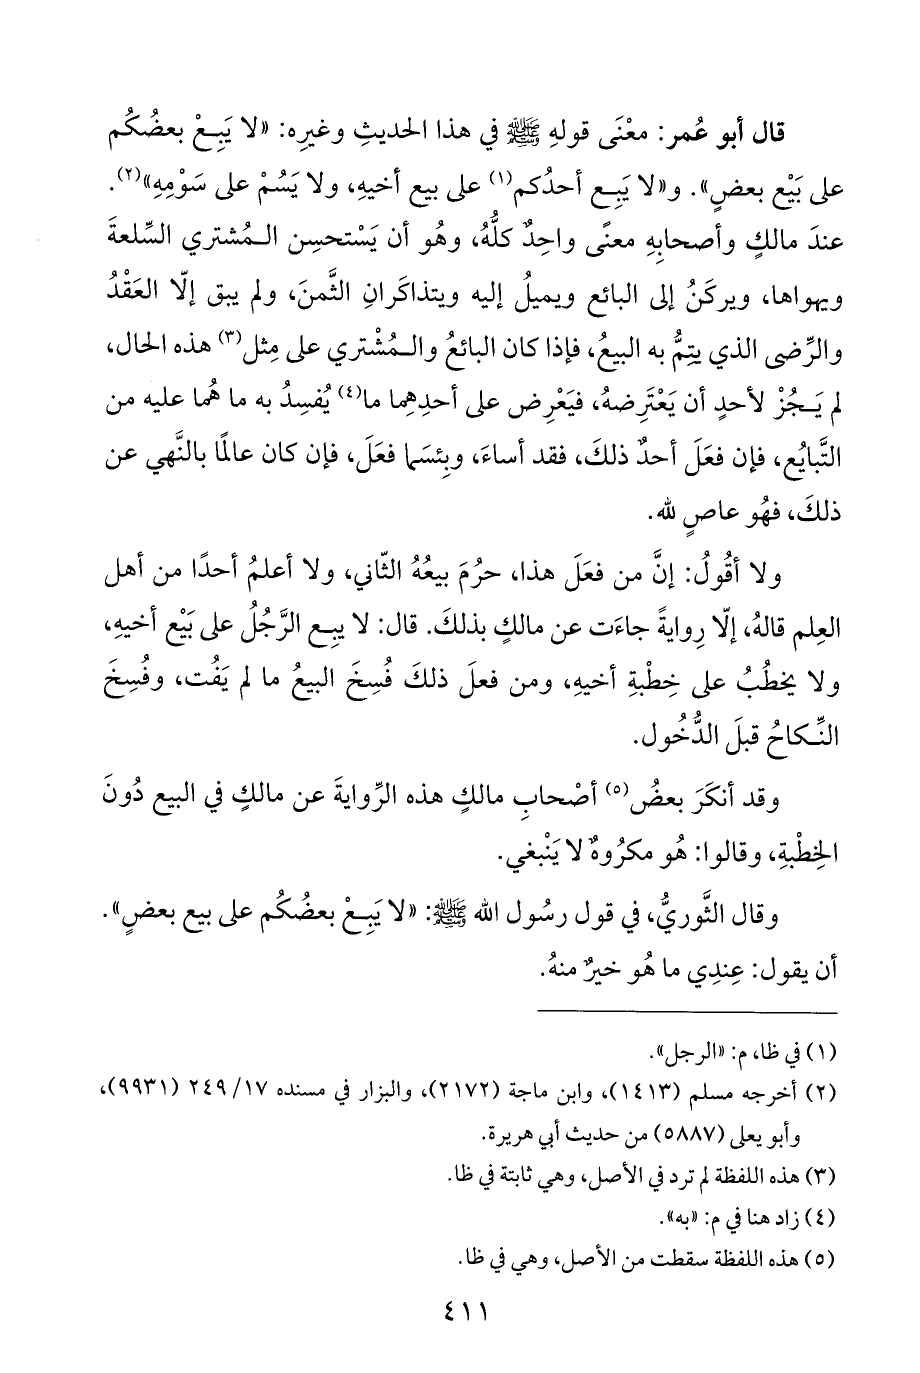 قال أبو عُمر: معْنَى قولهِ ﷺ في هذا الحديثِ وغيرِه: «لا يَبِعْ بعضُكُم
على بَيْع بعضٍ». و«لا يَبِع أحدُكم(١) على بيع أخيهِ، ولا يَسُمْ على سَوْمِهِ»(٢).
عندَ مالكٍ وأصحابِهِ معنًى واحِدٌ كلُّهُ، وهُو أن يَسْتحسِن المُشتري السِّلعةَ
ويهواها، ويركَنُ إلى البائع ويميلُ إليه ويتذاكَرانِ الثَّمنَ، ولم يبق إلّا العَقْدُ
والرِّضى الذي يتِمُّ به البيعُ، فإذا كان البائعُ والمُشتري على مِثل(٣) هذه الحال،
لم يَجُزْ لأحدٍ أن يَعْتَرِضهُ، فيَعْرِض على أحدِهِما ما(٤) يُفسِدُ به ما هُما عليه من
التَّبايُع، فإن فعَلَ أحدٌ ذلكَ، فقد أساءَ، وبِئسَما فعَلَ، فإن كان عالمًا بالنَّهي عن
ذلكَ، فهُو عاصٍ لله.
ولا أقُولُ: إنَّ من فعَلَ هذا، حرُمَ بيعُهُ الثّاني، ولا أعلمُ أحدًا من أهل
العِلم قالهُ، إلّا رِوايةً جاءَت عن مالكٍ بذلكَ. قال: لا يبِع الرَّجُلُ على بَيْع أخيهِ،
ولا يخطُبُ على خِطْبةِ أخيهِ، ومن فعلَ ذلكَ فُسِخَ البيعُ ما لم يَفُت، وفُسِخَ
النِّكاحُ قبلَ الدُّخُول.
وقد أنكَرَ بعضُ(٥) أصْحابِ مالكٍ هذه الرِّوايةَ عن مالكٍ في البيع دُونَ
الخِطْبةِ، وقالوا: هُو مكرُوهٌ لا يَنْبغي.
وقال الثَّوريُّ، في قول رسُول الله ﷺ: «لا يَبِعْ بعضُكُم على بيع بعضٍ».
أن يقول: عِندِي ما هُو خيرٌ منهُ.
(١) في ظا، م: «الرجل».
(٢) أخرجه مسلم (١٤١٣)، وابن ماجة (٢١٧٢)، والبزار في مسنده ١٧/ ٢٤٩ (٩٩٣١)،
وأبو يعلى (٥٨٨٧) من حديث أبي هريرة.
(٣) هذه اللفظة لم ترد في الأصل، وهي ثابتة في ظا.
(٤) زاد هنا في م: «به».
(٥) هذه اللفظة سقطت من الأصل، وهي في ظا.
٤١١